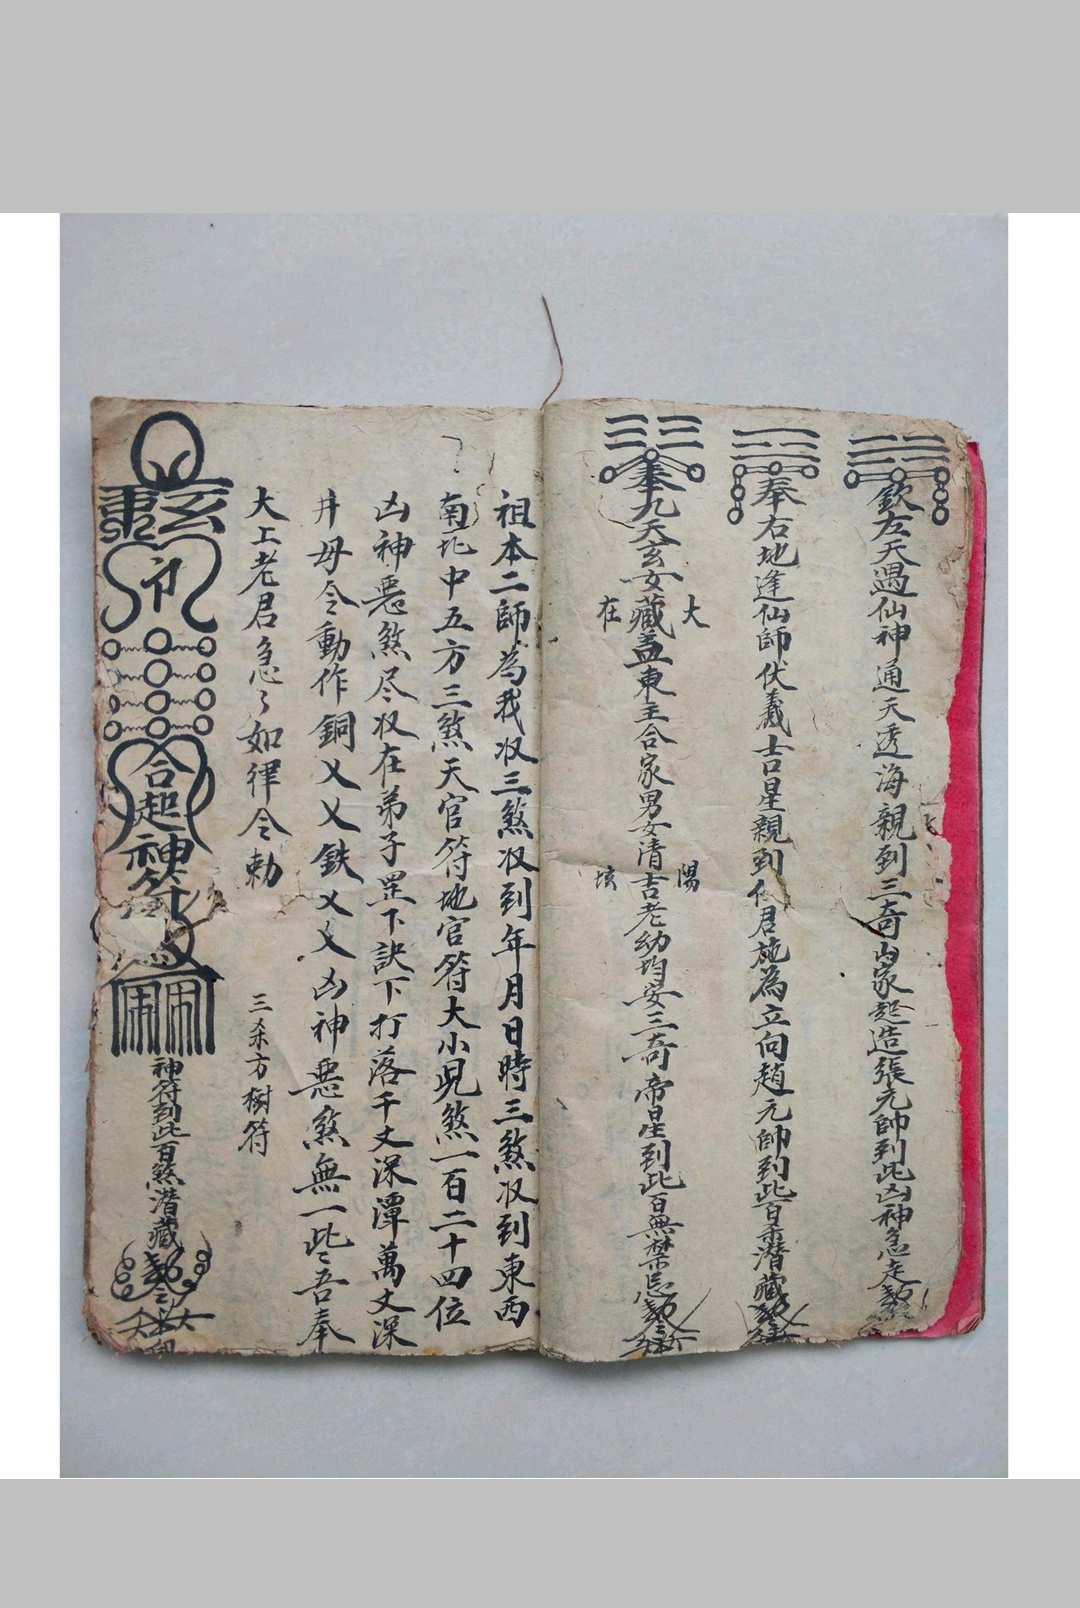 欽左天遇仙神通天透海親到三奇內家起造張元帥到此凶神急走
奉右地逢仙師伏羲吉星親到代君施為立向趙元帥到此百杀潛藏
奉九天玄女藏蓋東主合家男女清吉老幼均安三奇帝星到此百無禁忌
大
在
陽
祖本二師為我収三煞収到年月日時三煞収到東西
南北中五方三煞天官符地官符大小児煞一百二十四位
凶神惡煞尽収在弟子罡下訣下打落千丈深潭萬丈深
井毋令動作銅乂乂鉄乂乂凶神惡煞無一些吾奉
太上老君急〻如律令勅
三杀方樹符
玄
合起神符
神符到此百煞潛藏